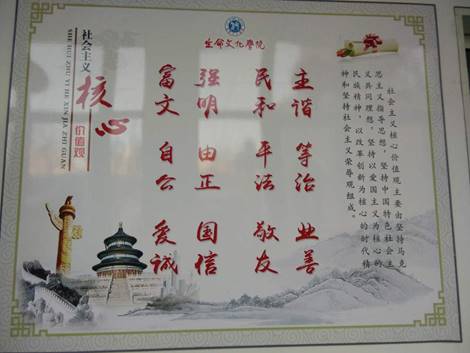 生命文化學院
社会主义
核心
价值观
SHE HUI ZHU YI HE XIN JIA ZHI GUAN
富强民主
文明和谐
自由平等
公正法治
爱国敬业
诚信友善
社会主义核心价值观主要由坚持马克
思主义指导思想，坚持中国特色社会主
义共同理想，坚持以爱国主义为核心的
民族精神，以改革创新为核心的时代精
神和坚持社会主义荣辱观组成。